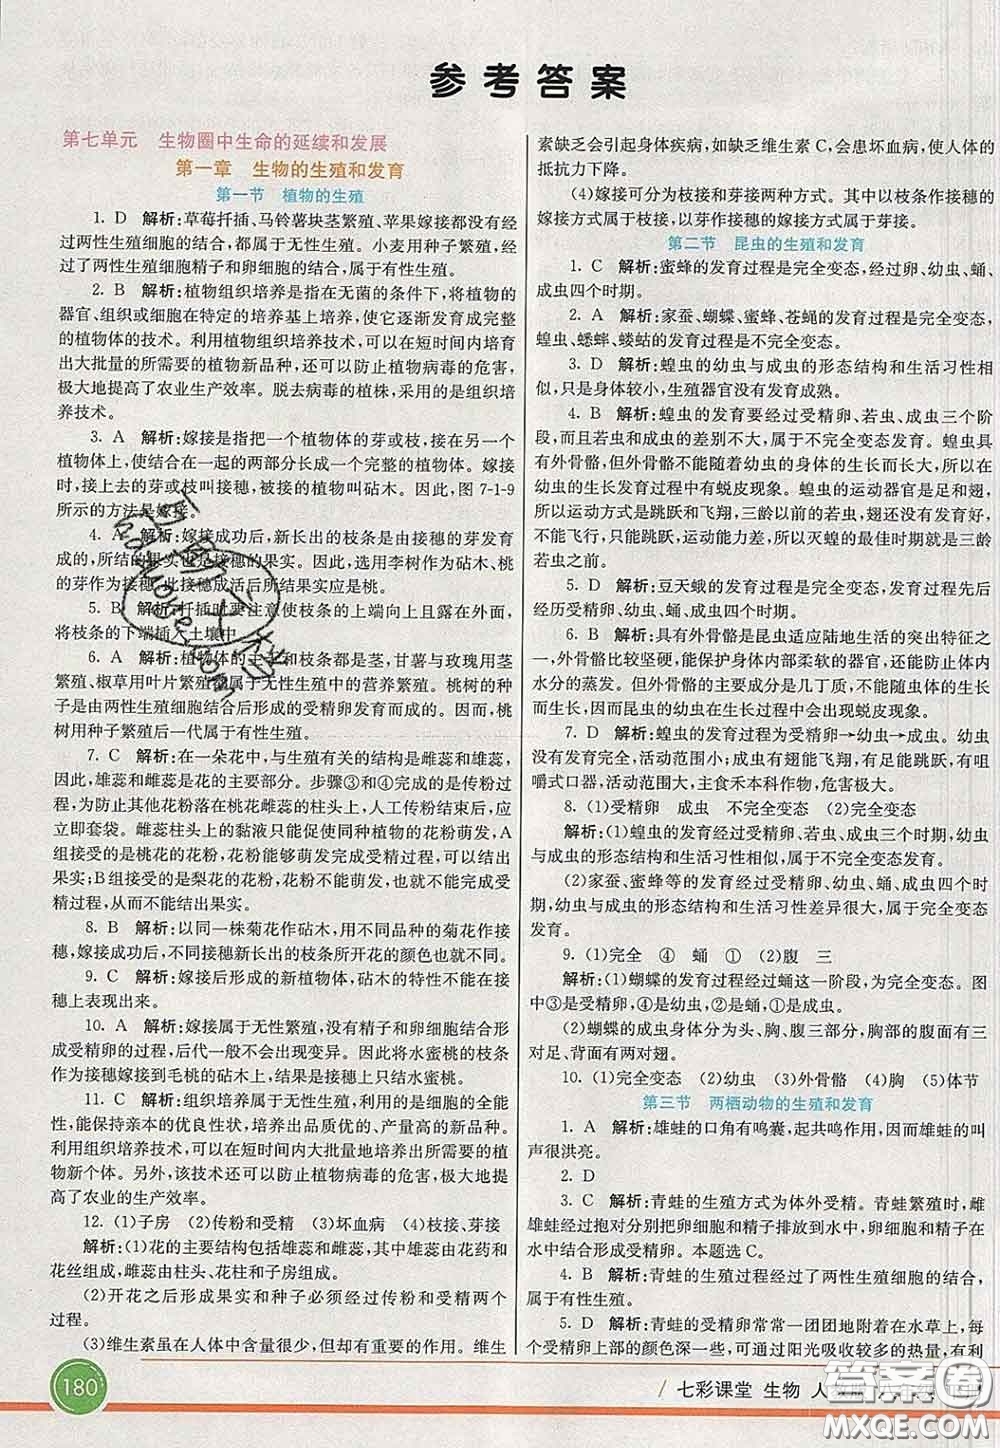 参考答案
第七单元 生物圈中生命的延续和发展
第一章 生物的生殖和发育
第一节 植物的生殖
1. D 解析:草莓扦插、马铃薯块茎繁殖、苹果嫁接都没有经
过两性生殖细胞的结合,都属于无性生殖。小麦用种子繁殖,经
过了两性生殖细胞精子和卵细胞的结合,属于有性生殖。
2. B 解析:植物组织培养是指在无菌的条件下,将植物的
器官、组织或细胞在特定的培养基上培养,使它逐渐发育成完整
的植物体的技术。利用植物组织培养技术,可以在短时间内培育
出大批量的所需要的植物新品种,还可以防止植物病毒的危害,
极大地提高了农业生产效率。脱去病毒的植株,采用的是组织培
养技术。
3. A 解析:嫁接是指把一个植物体的芽或枝,接在另一个
植物体上,使结合在一起的两部分长成一个完整的植物体。嫁接
时,接上去的芽或枝叫接穗,被接的植物叫砧木。因此,图7-1-9
所示的方法是嫁接。
4. A 解析:嫁接成功后,新长出的枝条是由接穗的芽发育
成的,所结的果实也是接穗的果实。因此,选用李树作砧木、桃
的芽作为接穗,此接穗成活后所结果实应是桃。
5. B 解析:扦插时要注意使枝条的上端向上且露在外面,
将枝条的下端插入土壤中。
6. A 解析:植物体的主干和枝条都是茎,甘薯与玫瑰用茎
繁殖、椒草用叶片繁殖都属于无性生殖中的营养繁殖。桃树的种
子是由两性生殖细胞结合后形成的受精卵发育而成的。因而,桃
树用种子繁殖后一代属于有性生殖。
7. C 解析:在一朵花中,与生殖有关的结构是雌蕊和雄蕊,
因此,雄蕊和雌蕊是花的主要部分。步骤③和④完成的是传粉过
程,为防止其他花粉落在桃花雌蕊的柱头上,人工传粉结束后,应
立即套袋。雌蕊柱头上的黏液只能促使同种植物的花粉萌发,A
组接受的是桃花的花粉,花粉能够萌发完成受精过程,可以结出
果实;B组接受的是梨花的花粉,花粉不能萌发,也就不能完成受
精过程,从而不能结出果实。
8. B 解析:以同一株菊花作砧木,用不同品种的菊花作接
穗,嫁接成功后,不同接穗新长出的枝条所开花的颜色也就不同。
9. C 解析:嫁接后形成的新植物体,砧木的特性不能在接
穗上表现出来。
10. A 解析:嫁接属于无性繁殖,没有精子和卵细胞结合形
成受精卵的过程,后代一般不会出现变异。因此将水蜜桃的枝条
作为接穗嫁接到毛桃的砧木上,应该结出水蜜桃。
11. C 解析:组织培养属于无性生殖,具有培养细胞的全能
性,能保持亲本的优良性状,培养出品质优的、产量高的新品种。
利用组织培养技术,可以在短时间内大批量地培育出所需要的植
物新个体。同时,该技术还可以防止植物病毒的危害,极大地提
高了农业的生产效率。
12. (1)子房 (2)传粉和受精 (3)坏血病 (4)枝接、芽接
解析:(1)花的主要结构包括雄蕊和雌蕊,其中雄蕊由花药和
花丝组成,雌蕊由柱头、花柱和子房组成。
(2)开花之后形成果实和种子必须经过传粉和受精两个
过程。
(3)维生素虽在人体中含量很少,但却有重要的作用。维生
素缺乏会引起身体疾病,如缺乏维生素C,会患坏血病,使人体的
抵抗力下降。
(4)嫁接可分为枝接和芽接两种方式。其中以枝条作接穗的
嫁接方式属于枝接,以芽作接穗的嫁接方式属于芽接。
第二节 昆虫的生殖和发育
1. C 解析:蜜蜂的发育过程是完全变态,经过卵、幼虫、蛹、
成虫四个时期。
2. A 解析:家蚕、蝴蝶、蜜蜂、苍蝇的发育过程是完全变态,
蝗虫、蟋蟀、蝼蛄的发育过程是不完全变态。
3. A 解析:蝗虫的幼虫与成虫的形态结构和生活习性相
似,只是身体较小,生殖器官没有发育成熟。
4. B 解析:蝗虫的发育要经过受精卵、若虫、成虫三个阶
段,而且若虫和成虫的差别不大,属于不完全变态发育。蝗虫具
有外骨骼,但外骨骼不能随着幼虫的身体的生长而长大,所以在
生长发育过程中有蜕皮现象。蝗虫的运动器官是足和翅,所以其
运动方式是跳跃和飞翔,三龄以前的若虫,翅还没有发育完善,
不能飞行,只能跳跃,运动能力差,所以灭蝗的最佳时期就是三龄
若虫之前。
5. D 解析:豆天蛾的发育过程是完全变态,发育过程先后
经历受精卵、幼虫、蛹、成虫四个时期。
6. B 解析:具有外骨骼是昆虫适应陆地生活的突出特征之
一,外骨骼比较坚硬,能保护身体内部柔软的器官,还能防止体内
水分的蒸发。但外骨骼的主要成分是几丁质,不能随虫体的生长
而生长,因此昆虫在生长过程中会出现蜕皮现象。
7. D 解析:蝗虫的发育过程为受精卵→幼虫→成虫。成虫
翅发育完全,活动范围大。成虫既能飞翔,又有足能跳跃,有咀
嚼式口器,活动范围大,主食禾本科作物,危害最大。
8. (1)受精卵 成虫 不完全变态 (2)完全变态
解析:(1)蝗虫的发育经过受精卵、若虫、成虫三个时期,幼虫
与成虫的形态结构和生活习性相似,属于不完全变态发育。
(2)家蚕、蜜蜂等的发育经过受精卵、幼虫、蛹、成虫四个时
期,幼虫与成虫的形态结构和生活习性差异很大,属于完全变态
发育。
9. (1)完全 ④ 蛹 ① (2)腹 三
解析:(1)蝴蝶的发育过程经过蛹这一阶段,为完全变态。图
中③是受精卵,④是幼虫,②是蛹,①是成虫。
(2)蝴蝶的成虫身体分为头、胸、腹三部分,胸部的腹面有三
对足、背面有两对翅。
10. (1)完全变态 (2)幼虫 (3)外骨骼 (4)胸 (5)体节
第三节 两栖动物的生殖和发育
1. A 解析:雄蛙的口角有鸣囊,起共鸣作用,因而雄蛙的叫
声很洪亮。
2. D
3. C 解析:青蛙的生殖方式为体外受精。青蛙繁殖时,雌
雄蛙经过抱对分别把卵细胞和精子排放到水中,卵细胞和精子在
水中结合形成受精卵。本题选C。
4. B 解析:青蛙的生殖过程经过了两性生殖细胞的结合,
属于有性生殖。
5. D 解析:青蛙的受精卵常常一团团地附着在水草上,每
个受精卵上部的颜色深一些,可通过阳光吸收较多的热量,有利
180
七彩课堂 生物
答案卷
MXQE.COM